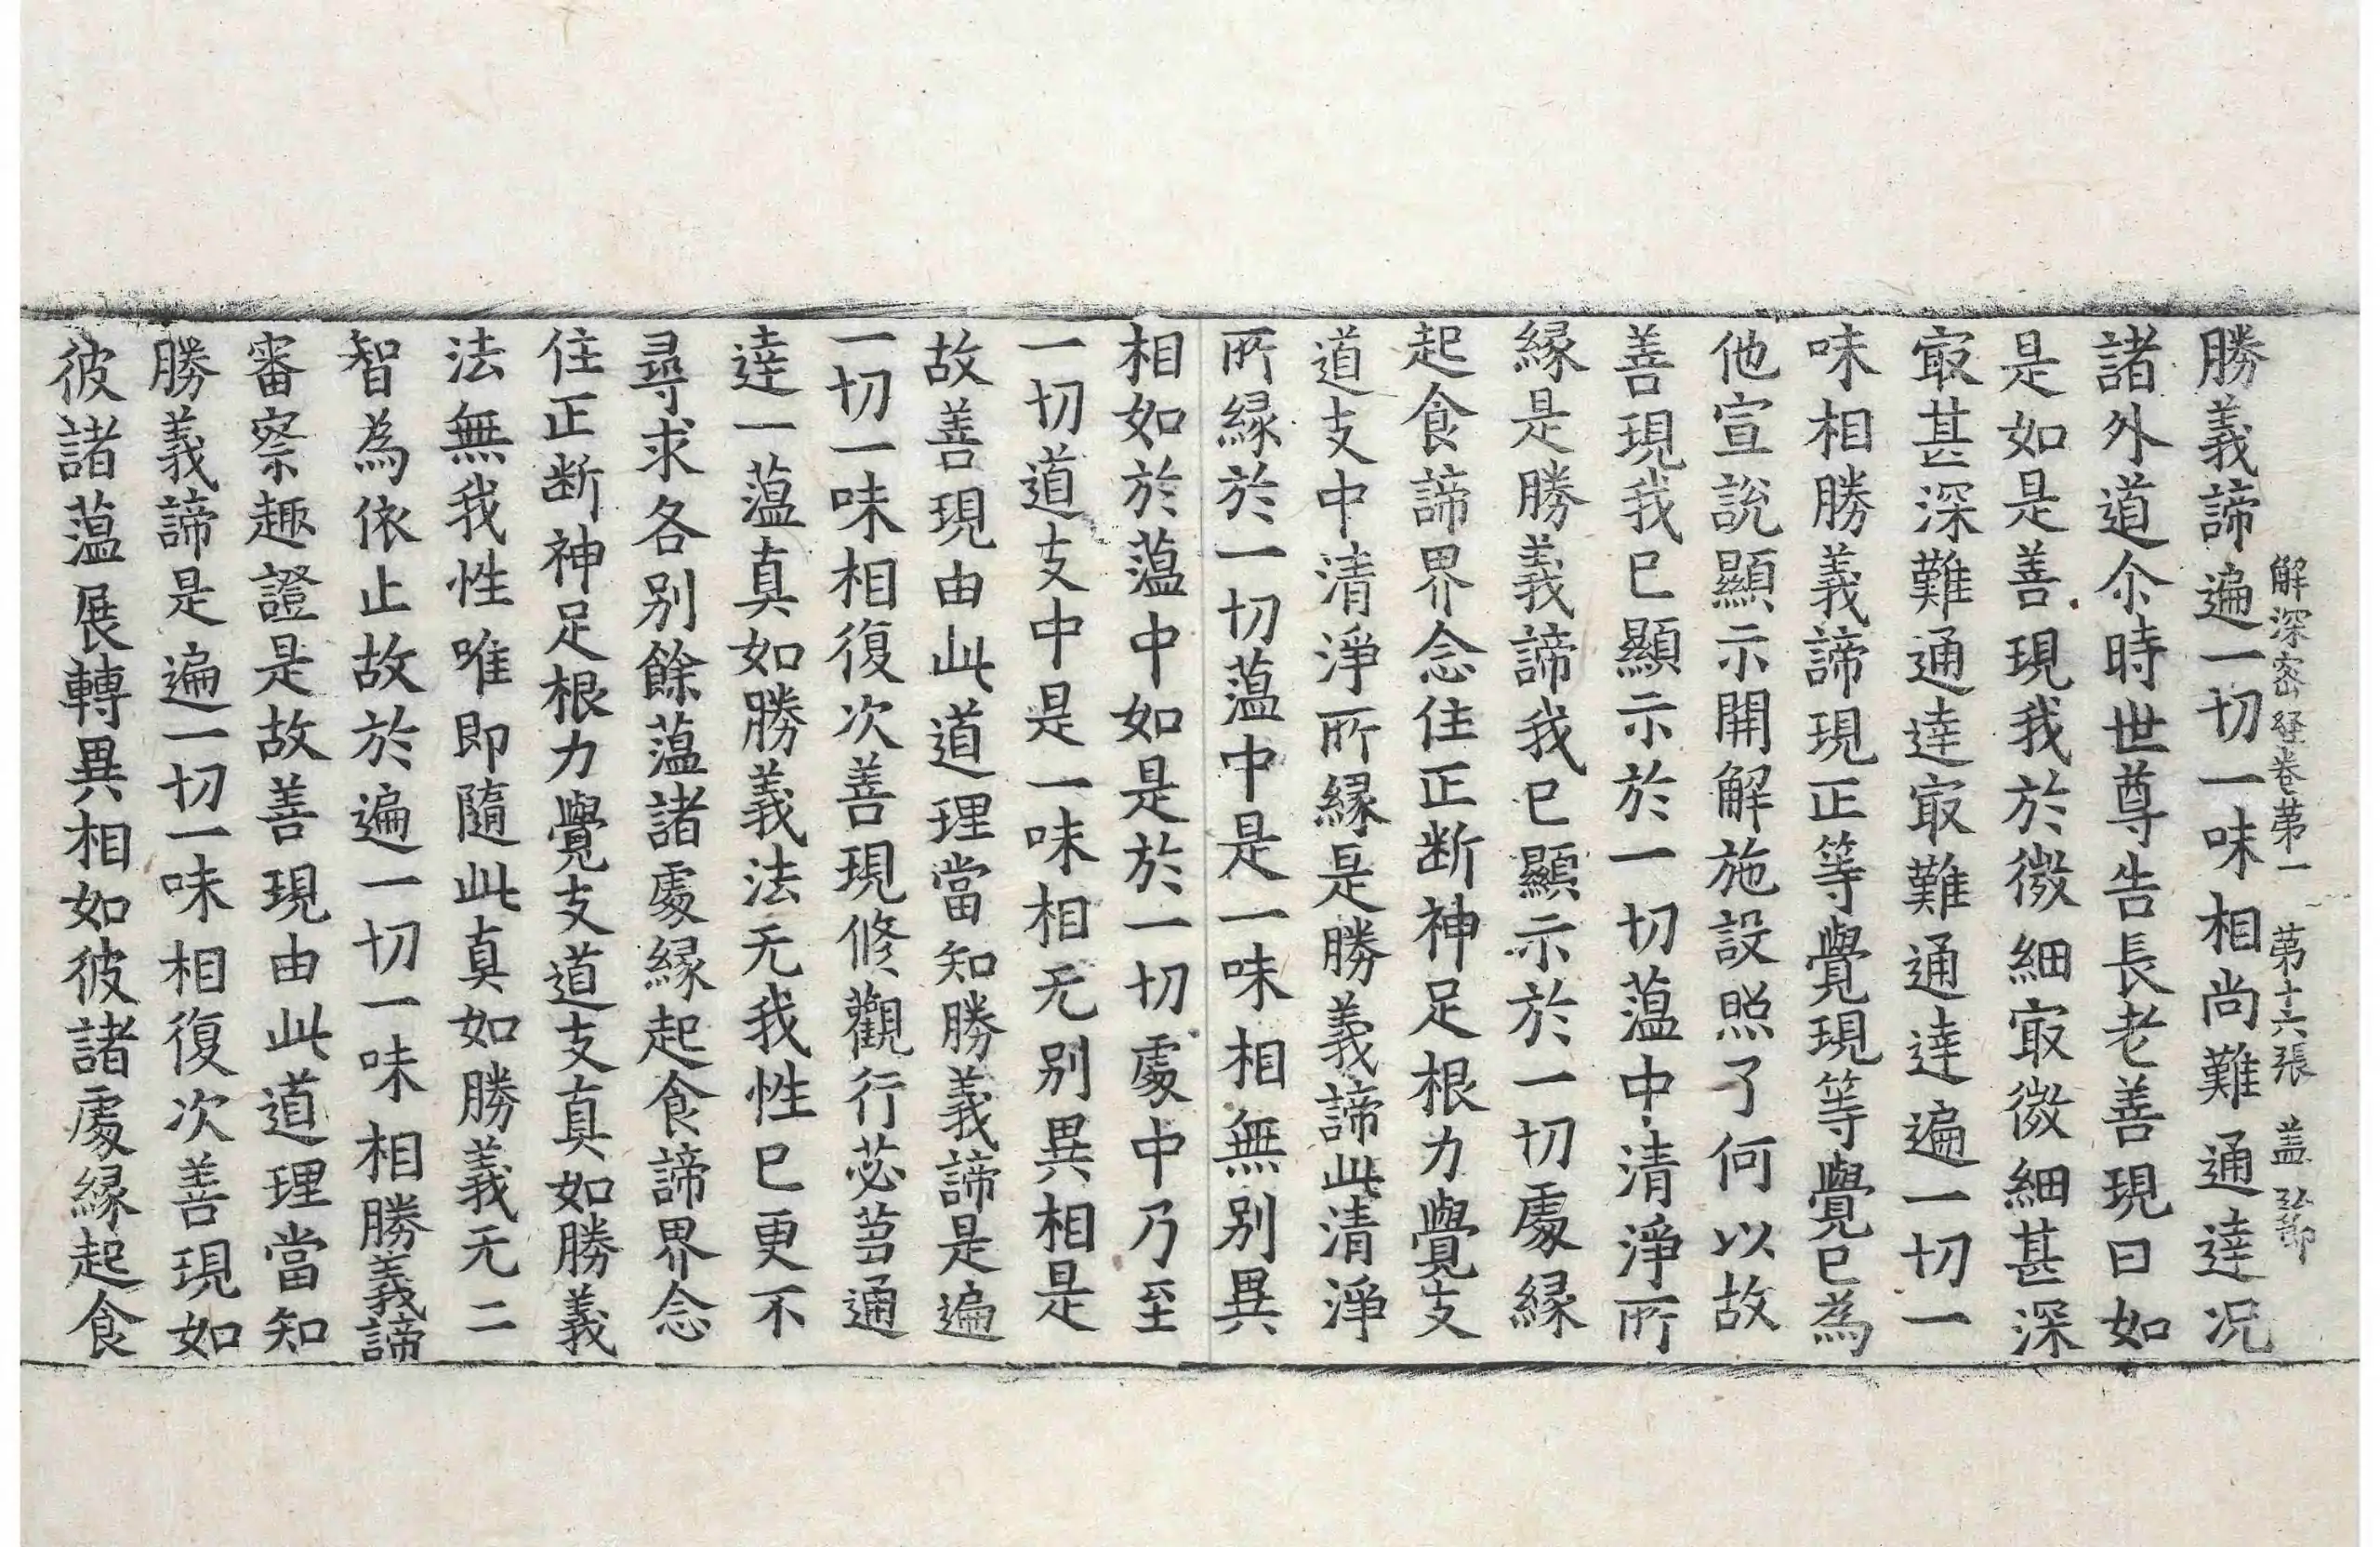 解深密経卷苐一　苐十六張　盖
勝義諦遍一切一味相尚難通達况
諸外道尒時世尊告長老善現曰如
是如是善現我於微細㝡微細甚深
㝡甚深難通達㝡難通達遍一切一
味相勝義諦現正等覺現等覺已為
他宣說顯示開解施設照了何以故
善現我已顯示於一切薀中清淨所
縁是勝義諦我已顯示於一切處縁
起食諦界念住正断神足根力覺支
道支中清淨所縁是勝義諦此清淨
所縁於一切薀中是一味相無别異
相如於薀中如是於一切處中乃至
一切道支中是一味相无别異相是
故善現由此道理當知勝義諦是遍
一切一味相復次善現修觀行苾蒭通
達一薀真如勝義法无我性已更不
尋求各别餘薀諸處縁起食諦界念
住正断神足根力覺支道支真如勝義
法無我性唯即隨此真如勝義无二
智為依止故於遍一切一味相勝義諦
審察趣證是故善現由此道理當知
勝義諦是遍一切一味相復次善現如
彼諸薀展轉異相如彼諸處縁起食